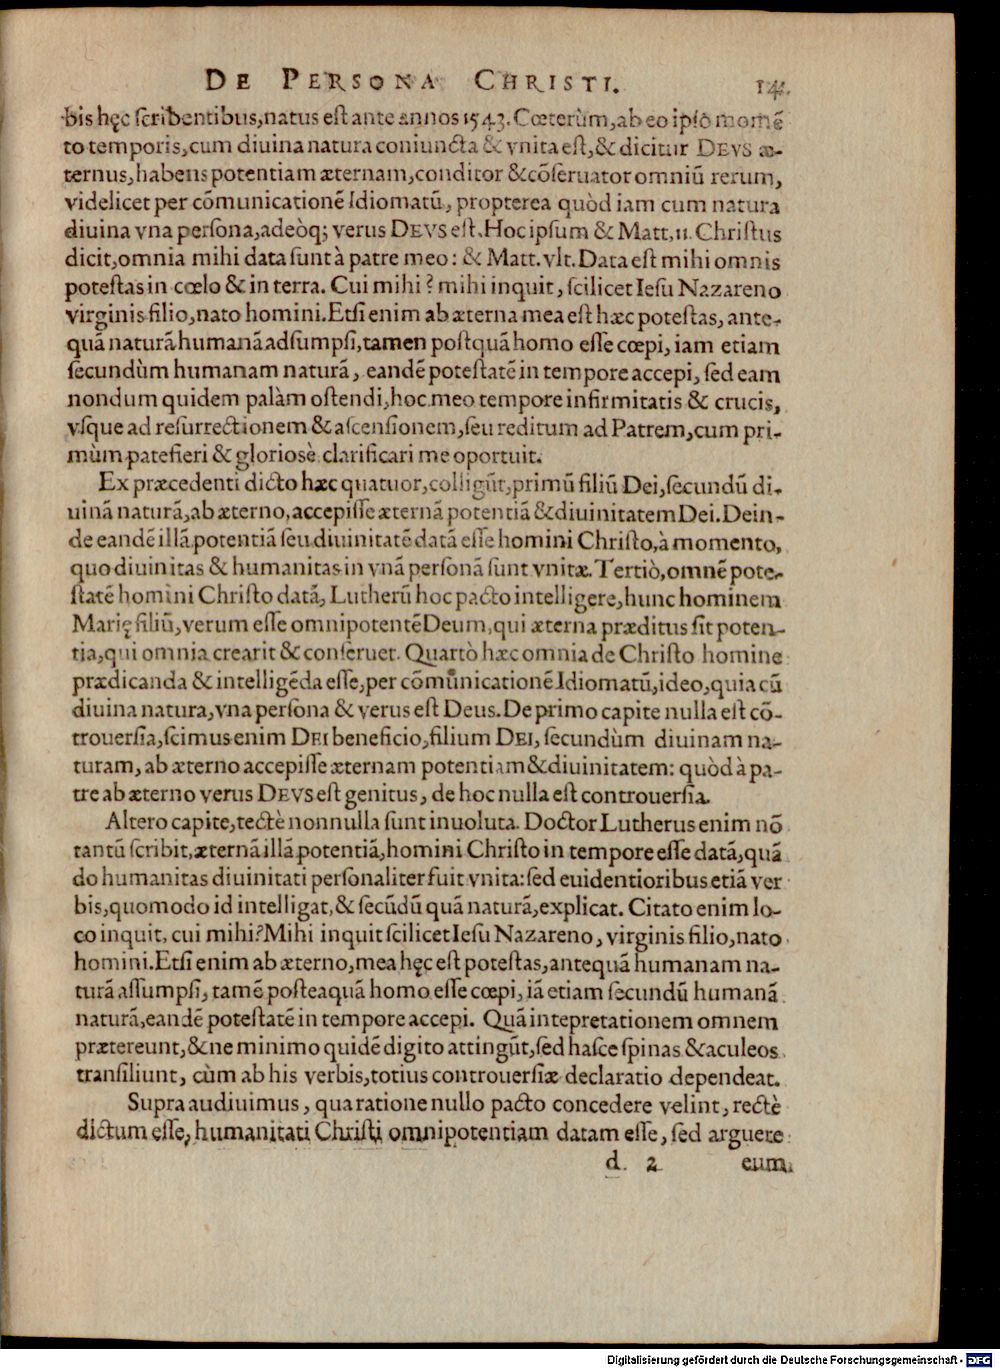 DE PERSONA CHRISTI. 14.
bis hęc scribentibus, natus est ante annos 1543. Cœterùm, ab eo ipso momẽ
to temporis, cum diuina natura coniuncta & vnita est, & dicitur DEVS æ-
ternus, habens potentiam æternam, conditor & cõseruator omniũ rerum,
videlicet per cõmunicationẽ Idiomatũ, propterea quòd iam cum natura
diuina vna persona, adeòq; verus DEVS est. Hoc ipsum & Matt. 11. Christus
dicit, omnia mihi data sunt à patre meo: & Matt. vlt. Data est mihi omnis
potestas in cœlo & in terra. Cui mihi? mihi inquit, scilicet Iesu Nazareno
virginis filio, nato homini. Etsi enim ab æterna mea est hæc potestas, ante-
quã naturã humanã adsumpsi, tamen postquã homo esse cœpi, iam etiam
secundùm humanam naturã, eandẽ potestatẽ in tempore accepi, sed eam
nondum quidem palàm ostendi, hoc meo tempore infirmitatis & crucis,
vsque ad resurrectionem & ascensionem, seu reditum ad Patrem, cum pri-
mùm patefieri & gloriosè clarificari me oportuit.
Ex præcedenti dicto hæc quatuor, colligũt, primũ filiũ Dei, secundũ di-
uinã naturã, ab æterno, accepisse æternã potentiã & diuinitatem Dei. Dein-
de eandẽ illã potentiã seu diuinitatẽ datã esse homini Christo, à momento,
quo diuinitas & humanitas in vnã personã sunt vnitæ. Tertiò, omnẽ pote-
statẽ homini Christo datã, Lutherũ hoc pacto intelligere, hunc hominem
Marię filiũ, verum esse omnipotentẽ Deum, qui æterna præditus sit poten-
tia, qui omnia crearit & conseruet. Quartò hæc omnia de Christo homine
prædicanda & intelligẽda esse, per cõmunicationẽ Idiomatũ, ideo, quia cũ
diuina natura, vna persona & verus est Deus. De primo capite nulla est cõ-
trouersia, scimus enim DEI beneficio, filium DEI, secundùm diuinam na-
turam, ab æterno accepisse æternam potentiam & diuinitatem: quòd à pa-
tre ab æterno verus DEVS est genitus, de hoc nulla est controuersia.
Altero capite, tectè nonnulla sunt inuoluta. Doctor Lutherus enim nõ
tantũ scribit, æternã illã potentiã, homini Christo in tempore esse datã, quã
do humanitas diuinitati personaliter fuit vnita: sed euidentioribus etiã ver
bis, quomodo id intelligat, & secũdũ quã naturã, explicat. Citato enim lo-
co inquit, cui mihi? Mihi inquit scilicet Iesu Nazareno, virginis filio, nato
homini. Etsi enim ab æterno, mea hęc est potestas, antequã humanam na-
turã assumpsi, tamẽ posteaquã homo esse cœpi, iã etiam secundũ humanã
naturã, eandẽ potestatẽ in tempore accepi. Quã intepretationem omnem
prætereunt, & ne minimo quidẽ digito attingũt, sed hasce spinas & aculeos
transiliunt, cùm ab his verbis, totius controuersiæ declaratio dependeat.
Supra audiuimus, qua ratione nullo pacto concedere velint, rectè
dictum esse, humanitati Christi omnipotentiam datam esse, sed arguere
d 2 eum
Digitalisierung gefördert durch die Deutsche Forschungsgemeinschaft - DFG